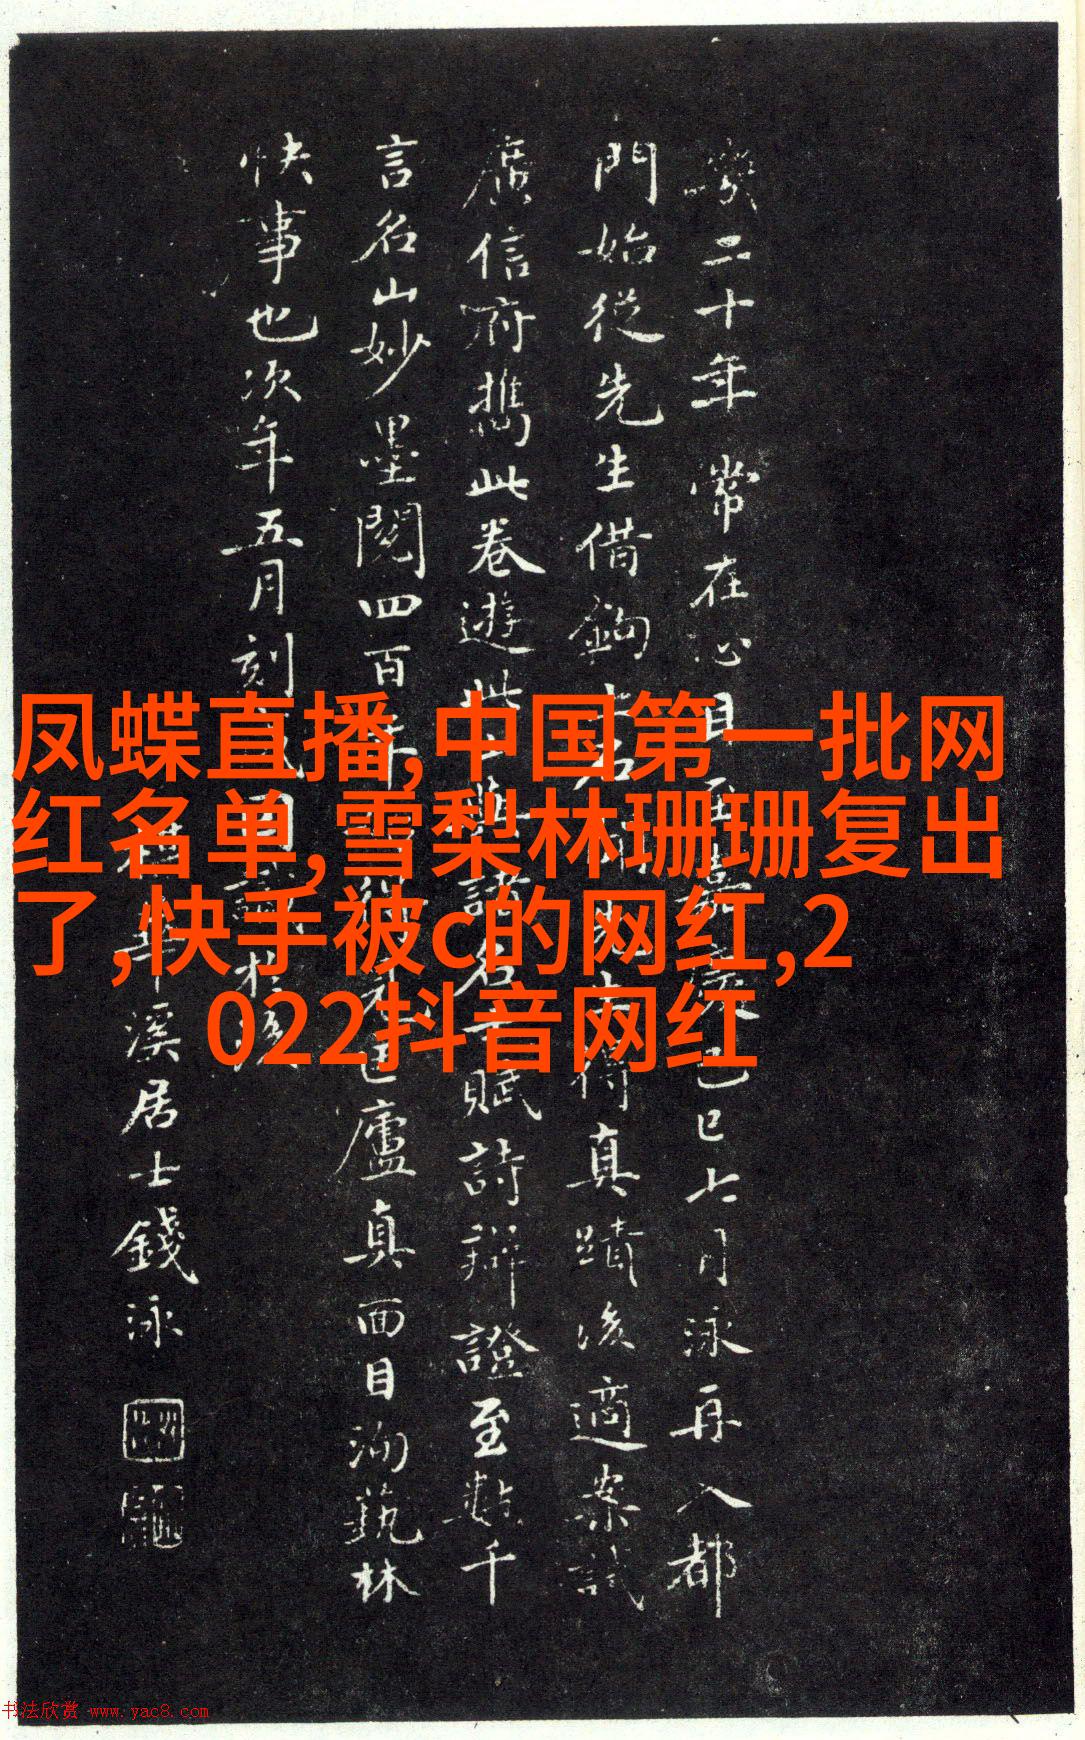 凤蝶直播,中国第一批网
红名单,雪梨林珊珊复出
了,快手被c的网红,2
022抖音网红
二十年常在心目至嘉慶己巳七月泳再入都
門始從先生借鉤
得真蹟後適案試
廣信府攜此卷遊
諸名
賦詩辯證至數千
言名山妙墨閱四百
廬真面目洵藝林
快事也次年五月刻
溪居士錢泳
书法欣赏 www.yac8.com